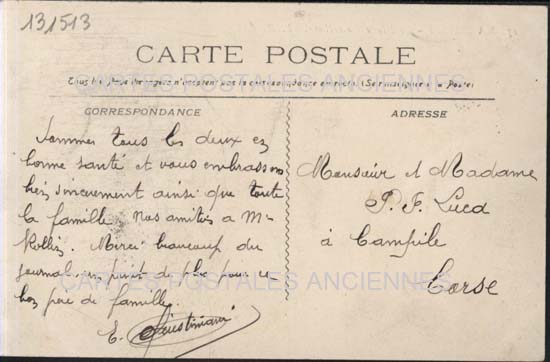 131513
CARTE POSTALE
Tous les pays étrangers n'acceptent pas la correspondance au recto (Se renseigner à la Poste)
CARTES POSTALES ANCIENNES
CORRESPONDANCE
ADRESSE
Sommes tous les deux en
bonne santé et vous embrassons
bien sincèrement ainsi que toute
la famille. Nos amitiés a Mr
Rollin. Merci beaucoup du
journal, point de plus pour ce
bon père de famille.
E. Giustiniani
Monsieur et Madame
P. F. Luca
à Campile
Corse
CARTES POSTALES ANCIENNES